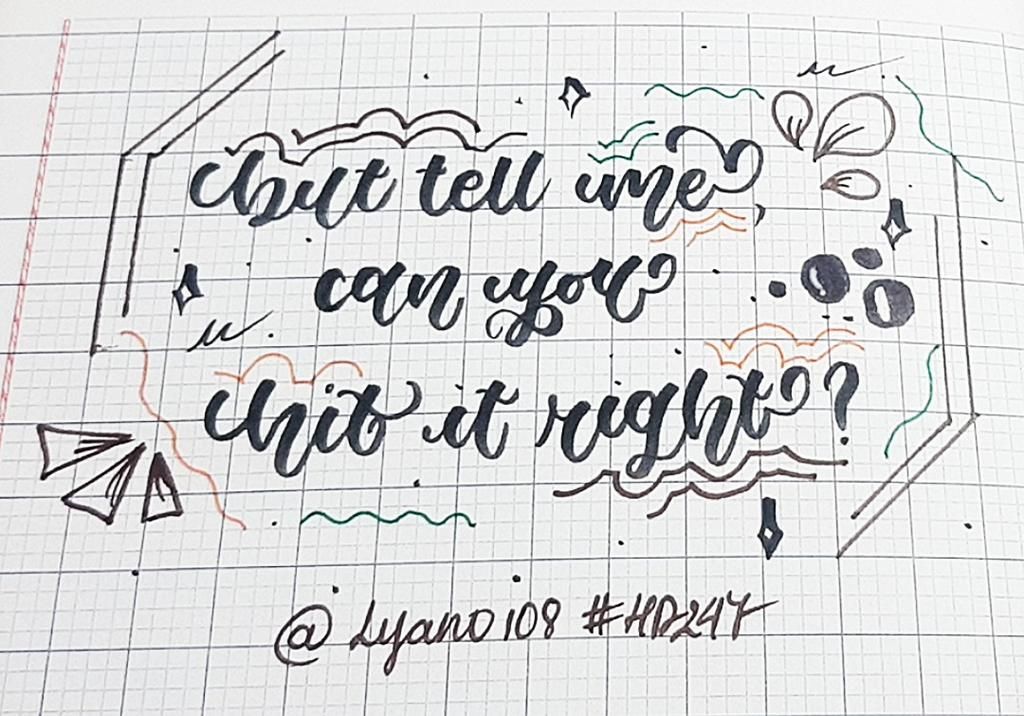 but tell me,
can you
hit it right?
@Lyano108 #HD247